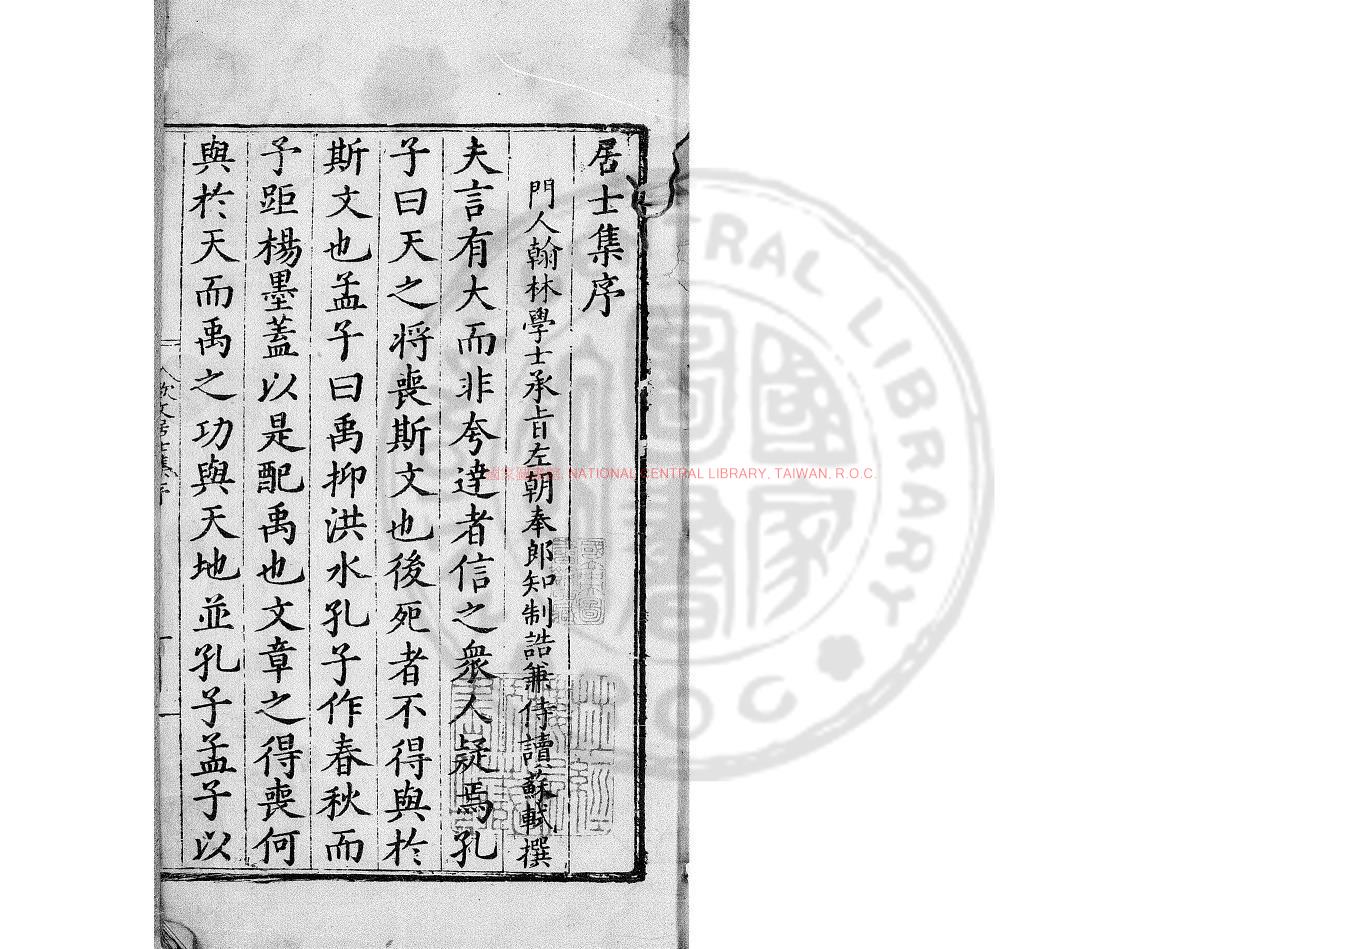 居士集序
門人翰林學士承旨左朝奉郎知制誥兼侍讀蘇軾撰
夫言有大而非夸達者信之衆人疑焉孔
子曰天之將喪斯文也後死者不得與於
斯文也孟子曰禹抑洪水孔子作春秋而
予距楊墨蓋以是配禹也文章之得喪何
與於天而禹之功與天地並孔子孟子以
國家圖書館 NATIONAL CENTRAL LIBRARY, TAIWAN, R.O.C.
CENTRAL LIBRARY
ROC